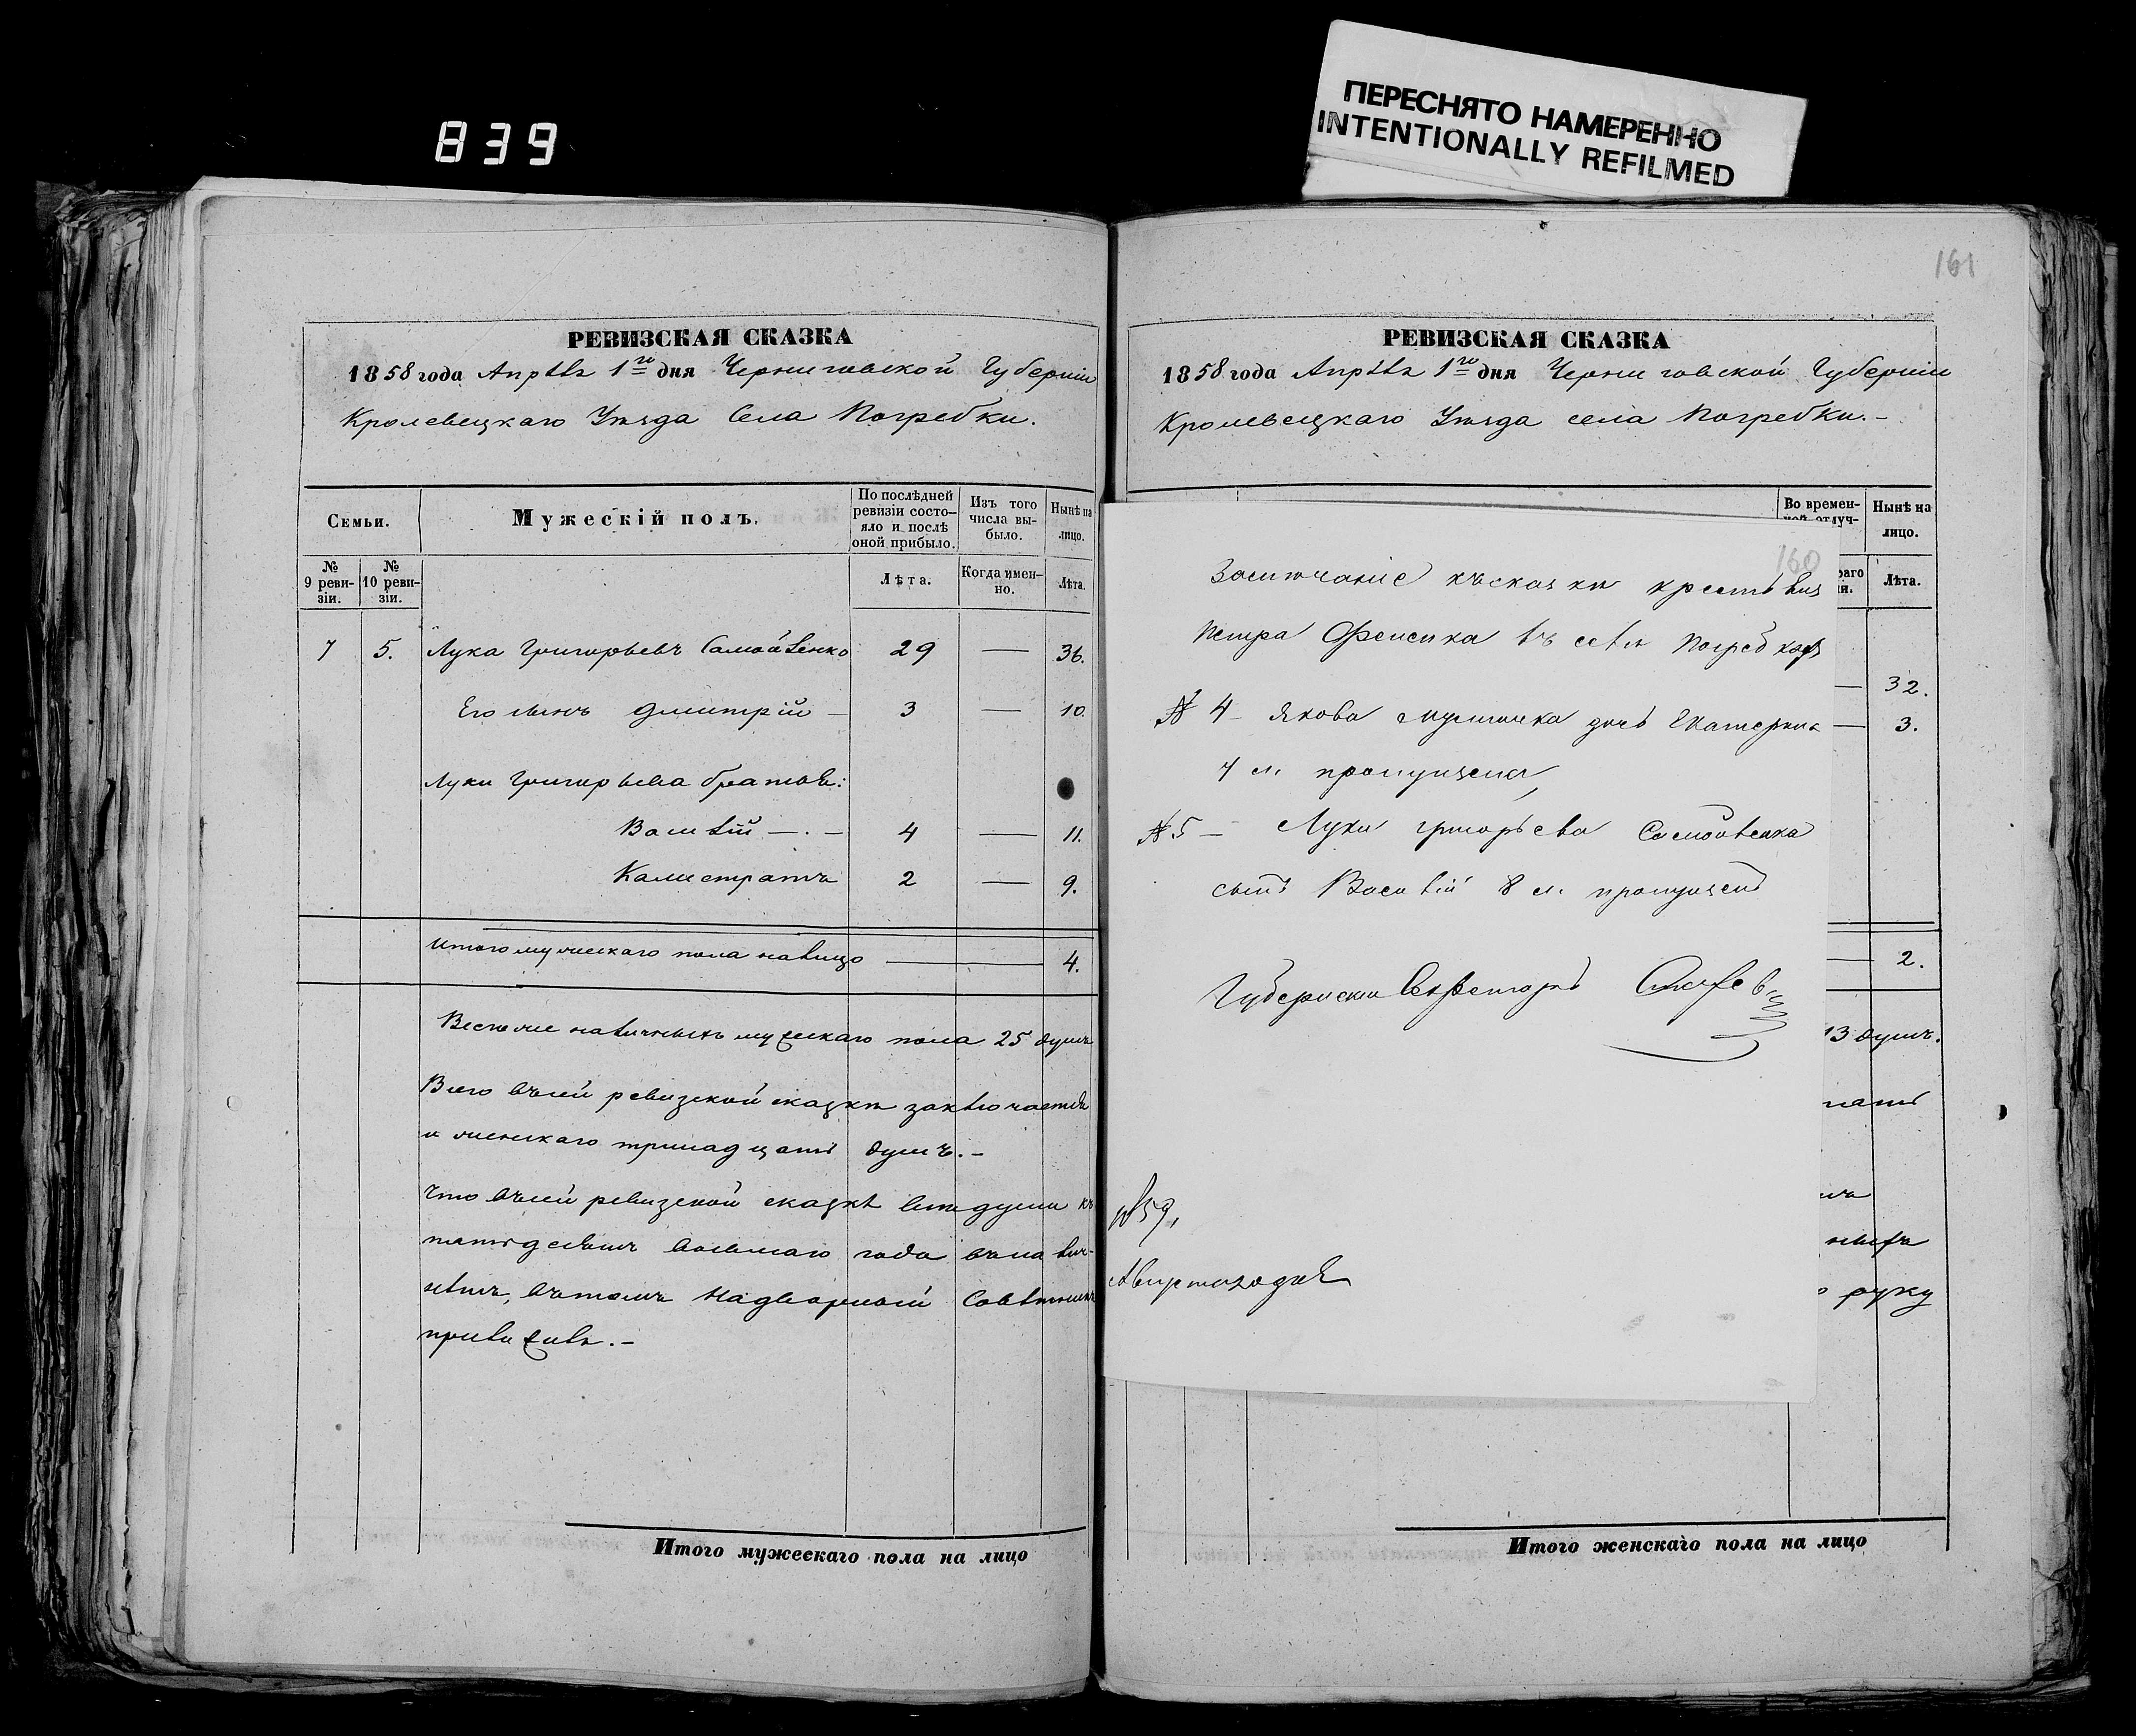 839
ПЕРЕСНЯТО НАМЕРЕННО
INTENTIONALLY REFILMED
РЕВИЗСКАЯ СКАЗКА
1858 года Апрѣля 1го дня Черниговской Губерніи
Кролевецкаго Уѣзда Села Погребки.
Семьи.
Мужескій полъ.
По послѣдней ревизіи состо-
яло и послѣ оной прибыло.
Изъ того числа вы-
было.
Нынѣ на лицо.
№ 9 реви-
зіи.
№ 10 реви-
зіи.
Лѣта.
Когда имен-
но.
Лѣта.
7 5. Лука Григорьевъ Самойленко 29 — 36.
Его сынъ Дмитрій — 3 — 10.
Луки Григорьева братья:
Василій — . — 4 — 11.
Калистратъ 2 — 9.
Итого мужескаго пола налицо — 4.
наличныхъ мужескаго пола 25 душъ
Всего въ сей ревизской сказкѣ заключается
и женскаго тринадцать душъ. —
Что въ сей ревизской сказкѣ всѣ души къ
пятьдесятъ восьмаго года
въ томъ Надворный Совѣтникъ
Итого мужескаго пола на лицо
161
РЕВИЗСКАЯ СКАЗКА
1858 года Апрѣля 1го дня Черниговской Губерніи
Кролевецкаго Уѣзда села Погребки. —
Во времен-
Нынѣ на лицо.
Лѣта.
— 32.
— 3.
— 2.
13 душъ.
руку
160
къ сказкѣ
Петра въ селѣ Погребкахъ
№ 4 — Якова дочь Екатерина
4 л. пропущена,
№ 5 — Луки Григорьева Самойленка
сынъ Василій 8 л. пропущенъ
Губернскій Секретарь
№ 59,
Итого женскаго пола на лицо